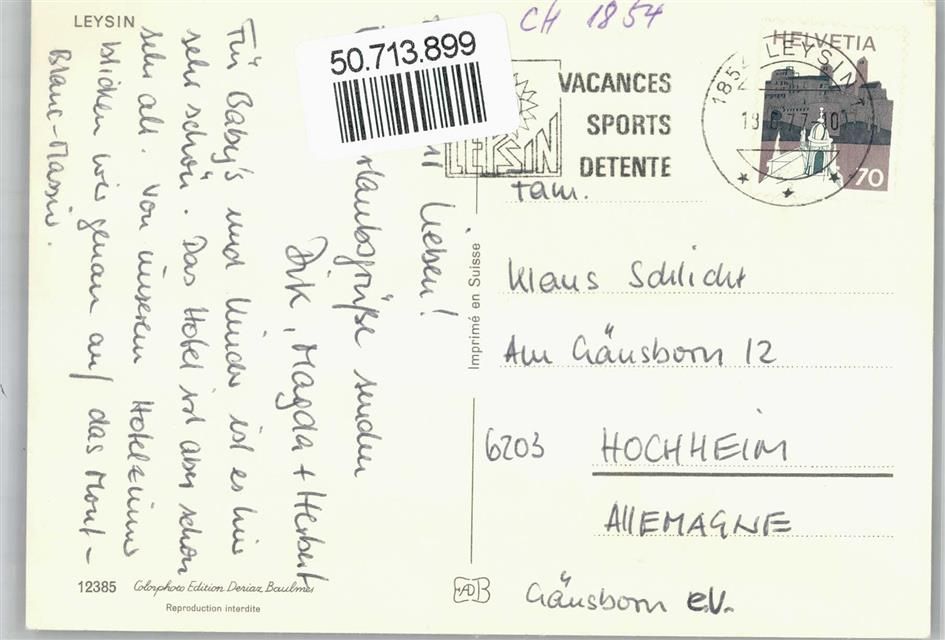 LEYSIN
50.713.899
CH 1854
HELVETIA
70
1854 LEYSIN
77-10
VACANCES
SPORTS
DETENTE
LEYSIN
Lieben!
senden
Dirk, Magda + Herbert
Für Baby's und Kinder ist es hier
sehr schön. Das Hotel ist aber schon
sehr alt. Von unserem Hotelzimmer
blicken wir genau auf das Mont-
Blanc-Massiv.
Fam.
Klaus Schlicht
Am Gänsborn 12
6203 HOCHHEIM
AllEMAGNE
Gänsborn e.V.
Imprimé en Suisse
12385 Colorphoto Edition Deriaz Baulmes
Reproduction interdite